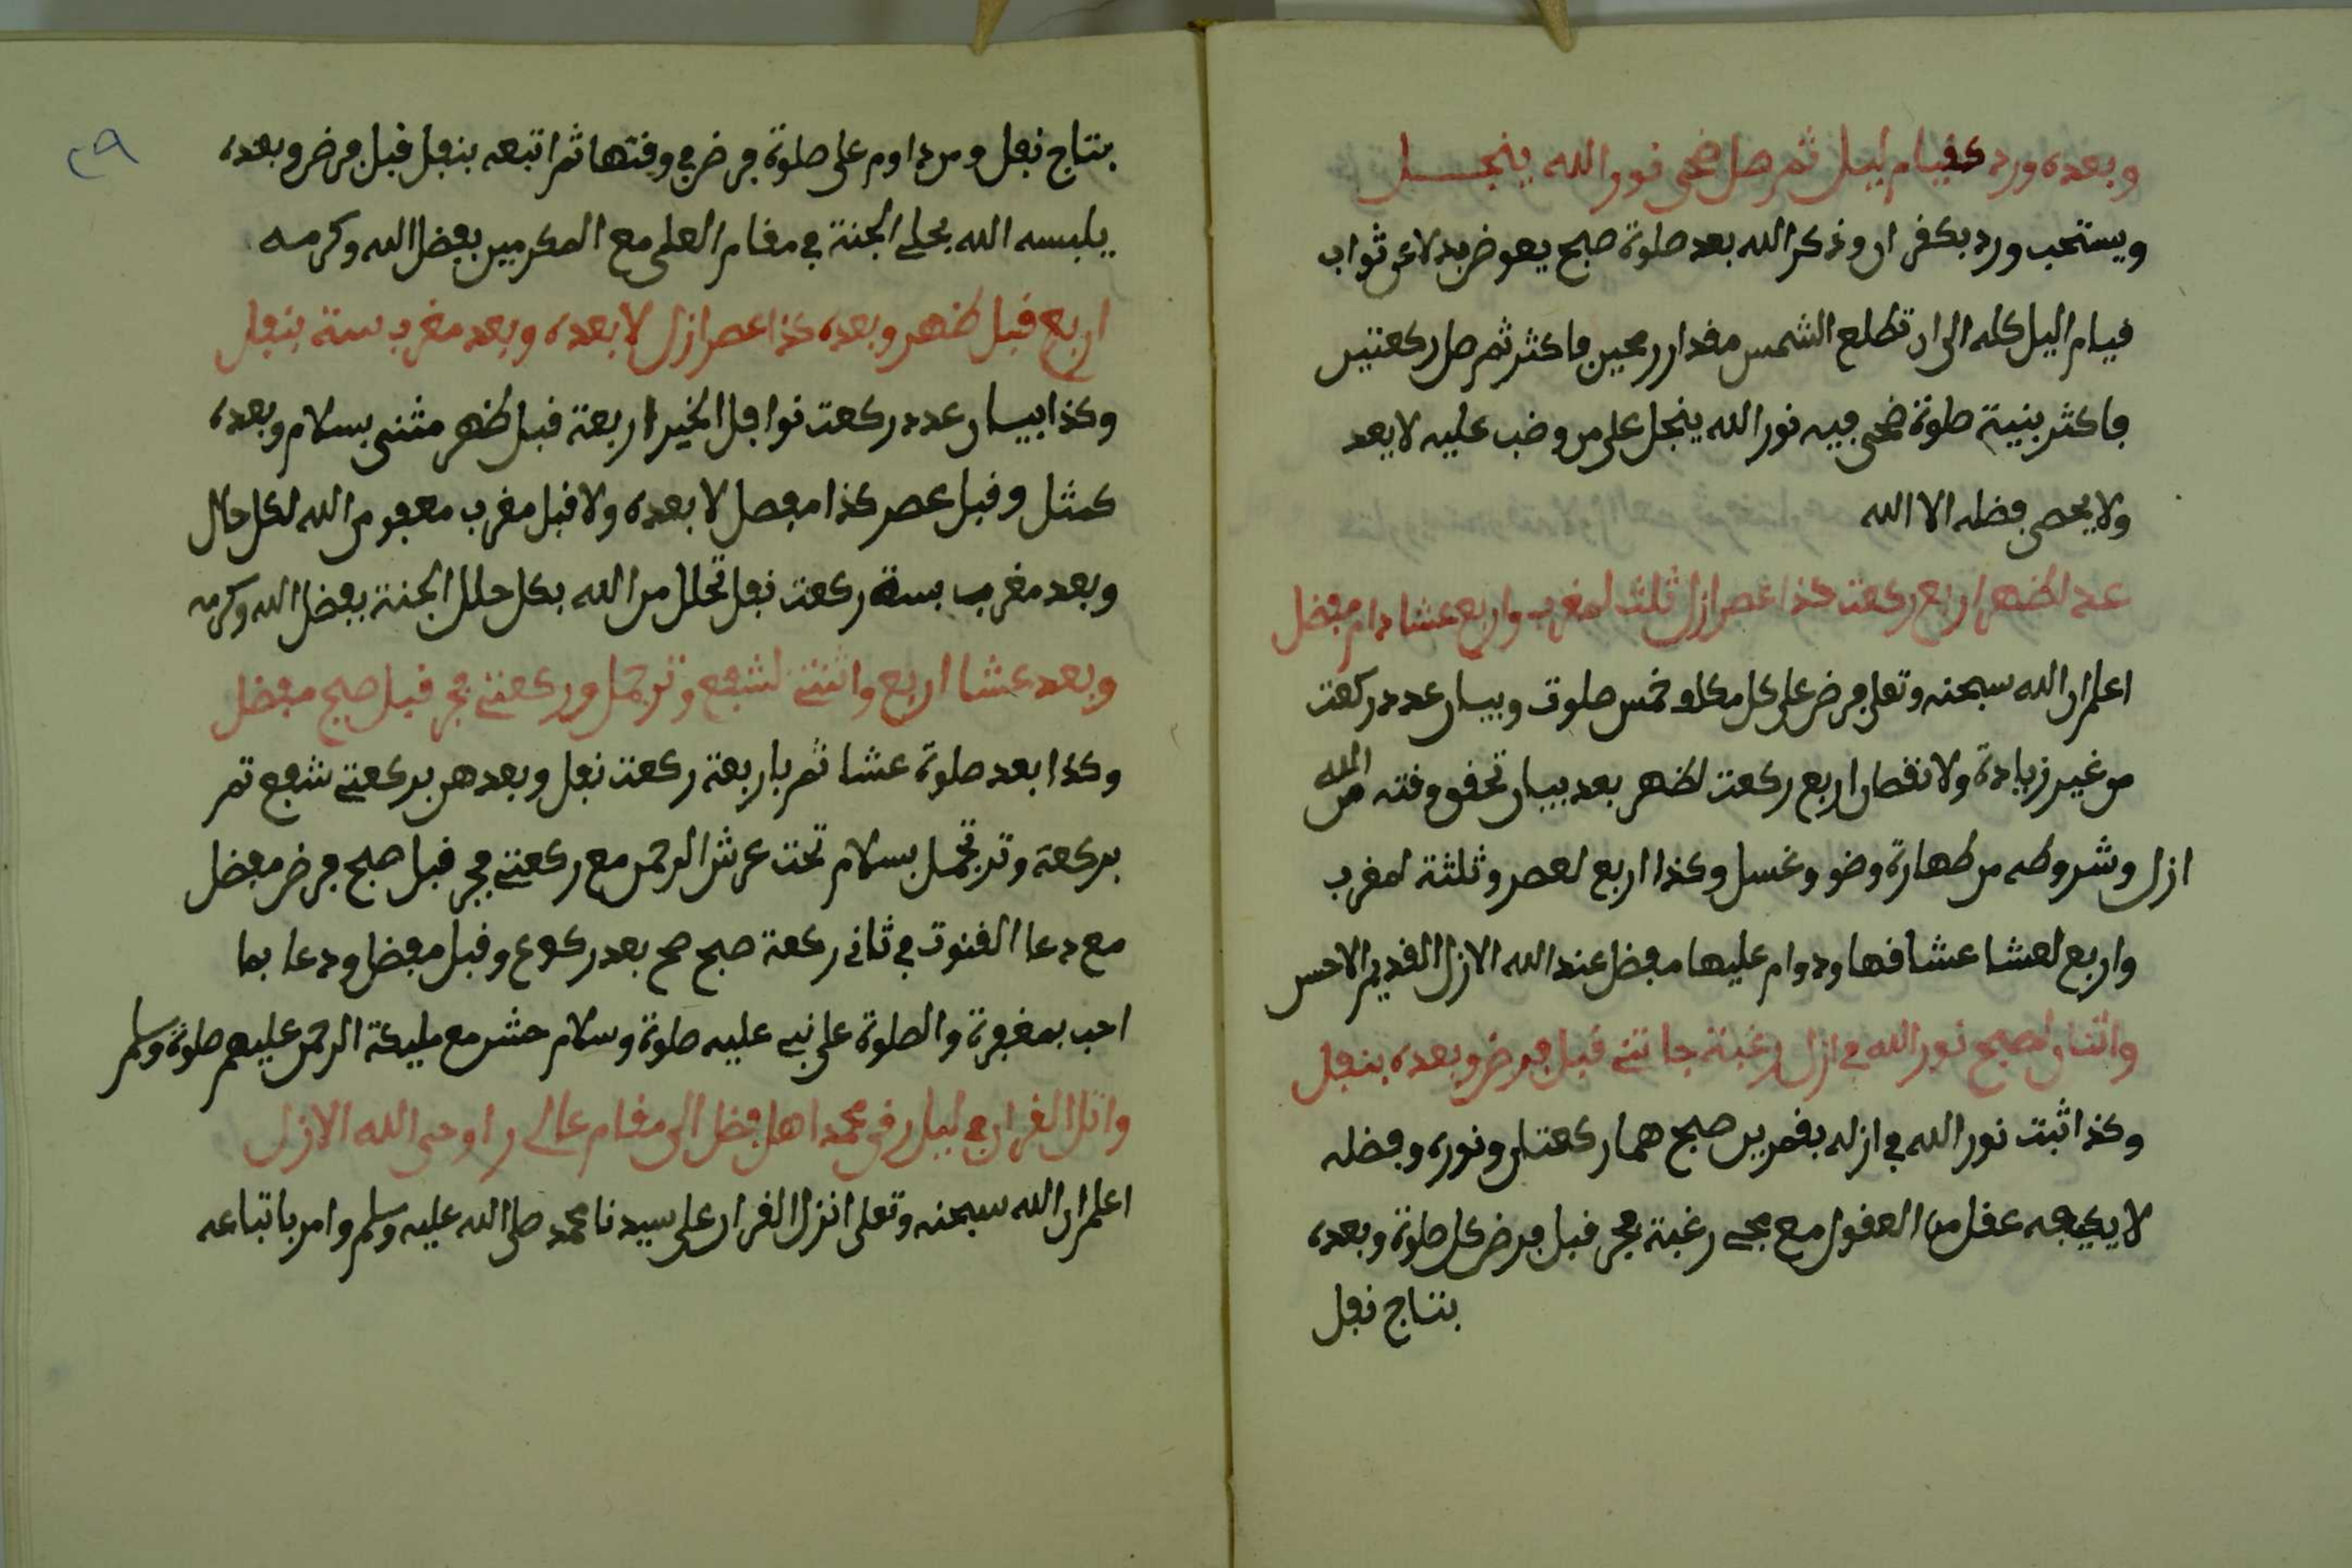 وبعده ورد كقيام ليل ثم صل ضحى نور الله ينجـــل
ويستحب ورد بكفران وذكر الله بعد صلوة صبح يعوض بدلا عن ثواب
قيام اليل كله الى ان تطلع الشمس مقدار رمحين فاكثر ثم صل ركعتين
فاكثر بنية صلوة ضحى فيه نور الله ينجل على من وضب عليه لا يعد
ولا يحصى فضله الا الله
عدد لظهر اربع ركعت كذا عصر ازل ثلث لمغرب واربع عشا دام مفضل
اعلم ان الله سبحنه وتعلى فرض على كل مكلف خمس صلوت وبيان عدد ركعت
من غير زيادة ولا نقصان اربع ركعت لظهر بعد بيان تحقق وقته من الله
ازل وشروطه من طهارة وضو وغسل وكذا اربع لعصر وثلثة لمغرب
واربع لعشا عشاقها ودوام عليها مفضل عند الله الازل القديم الاحسن
واثنان لصبح نور الله في ازل رغبة جا تنى قبل فرض وبعده بنفل
وكذا ثبت نور الله في ازله بقمرين صبح هما ركعتان ونوره وفضله
لا يكيفه عقل من العقول مع مجى رغبة فجر قبل فرض كل صلوة وبعده
بنتاج نفل
٢٩
بنتاج نفل ومن داوم على صلوة فرض في وقتها ثم اتبعه بنفل قبل فرض وبعده
يلبسه الله بحلى الجنة في مقام العلى مع المكرمين بفضل الله وكرمه
اربع قبل ظهر وبعده كذا عصر ازل لا بعده وبعد مغرب ستة بنفل
وكذا بيان عدد ركعت نوافل الخير اربعة قبل ظهر مثنى بسلام وبعده
كمثل وقبل عصر كذا مفصل لا بعده ولا قبل مغرب معفو من الله لكل حال
وبعد مغرب بستة ركعت نفل تحلل من الله بكل حلل الجنة بفضل الله وكرمه
وبعد عشا اربع واثنتى لشفع وتر جمل وركعتى فجر قبل صبح مفضل
وكذا بعد صلوة عشا ثم باربعة ركعت نفل وبعدهن بركعتى شفع ثم
بركعة وتر تجمل بسلام تحت عرش الرحمن مع ركعتى فجر قبل صبح فرض مفضل
مع دعا القنوت في ثانى ركعة صبح صح بعد ركوع وقبل مفضل ودعا بما
احب بمغفرة والصلوة على نبى عليه صلوة وسلام حشر مع مليكة الرحمن عليهم صلوة وسلم
واتل القران في ليل رقى محمد اهل فضل الى مقام عالى راوحى الله الازل
اعلم ان الله سبحنه وتعلى انزل القران على سيدنا محمد صلى الله عليه وسلم وامر باتباعه